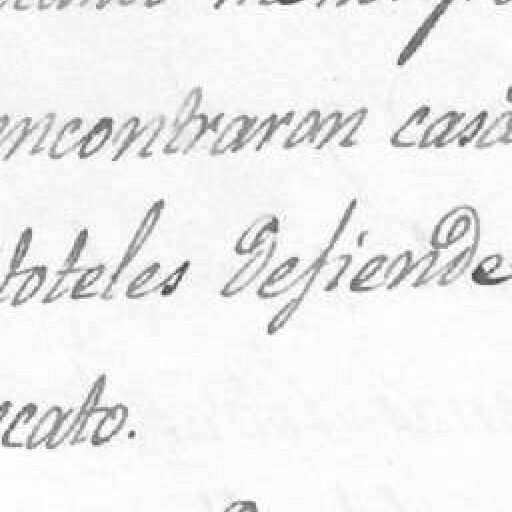 encontraron casa
toteles defiende
cato.